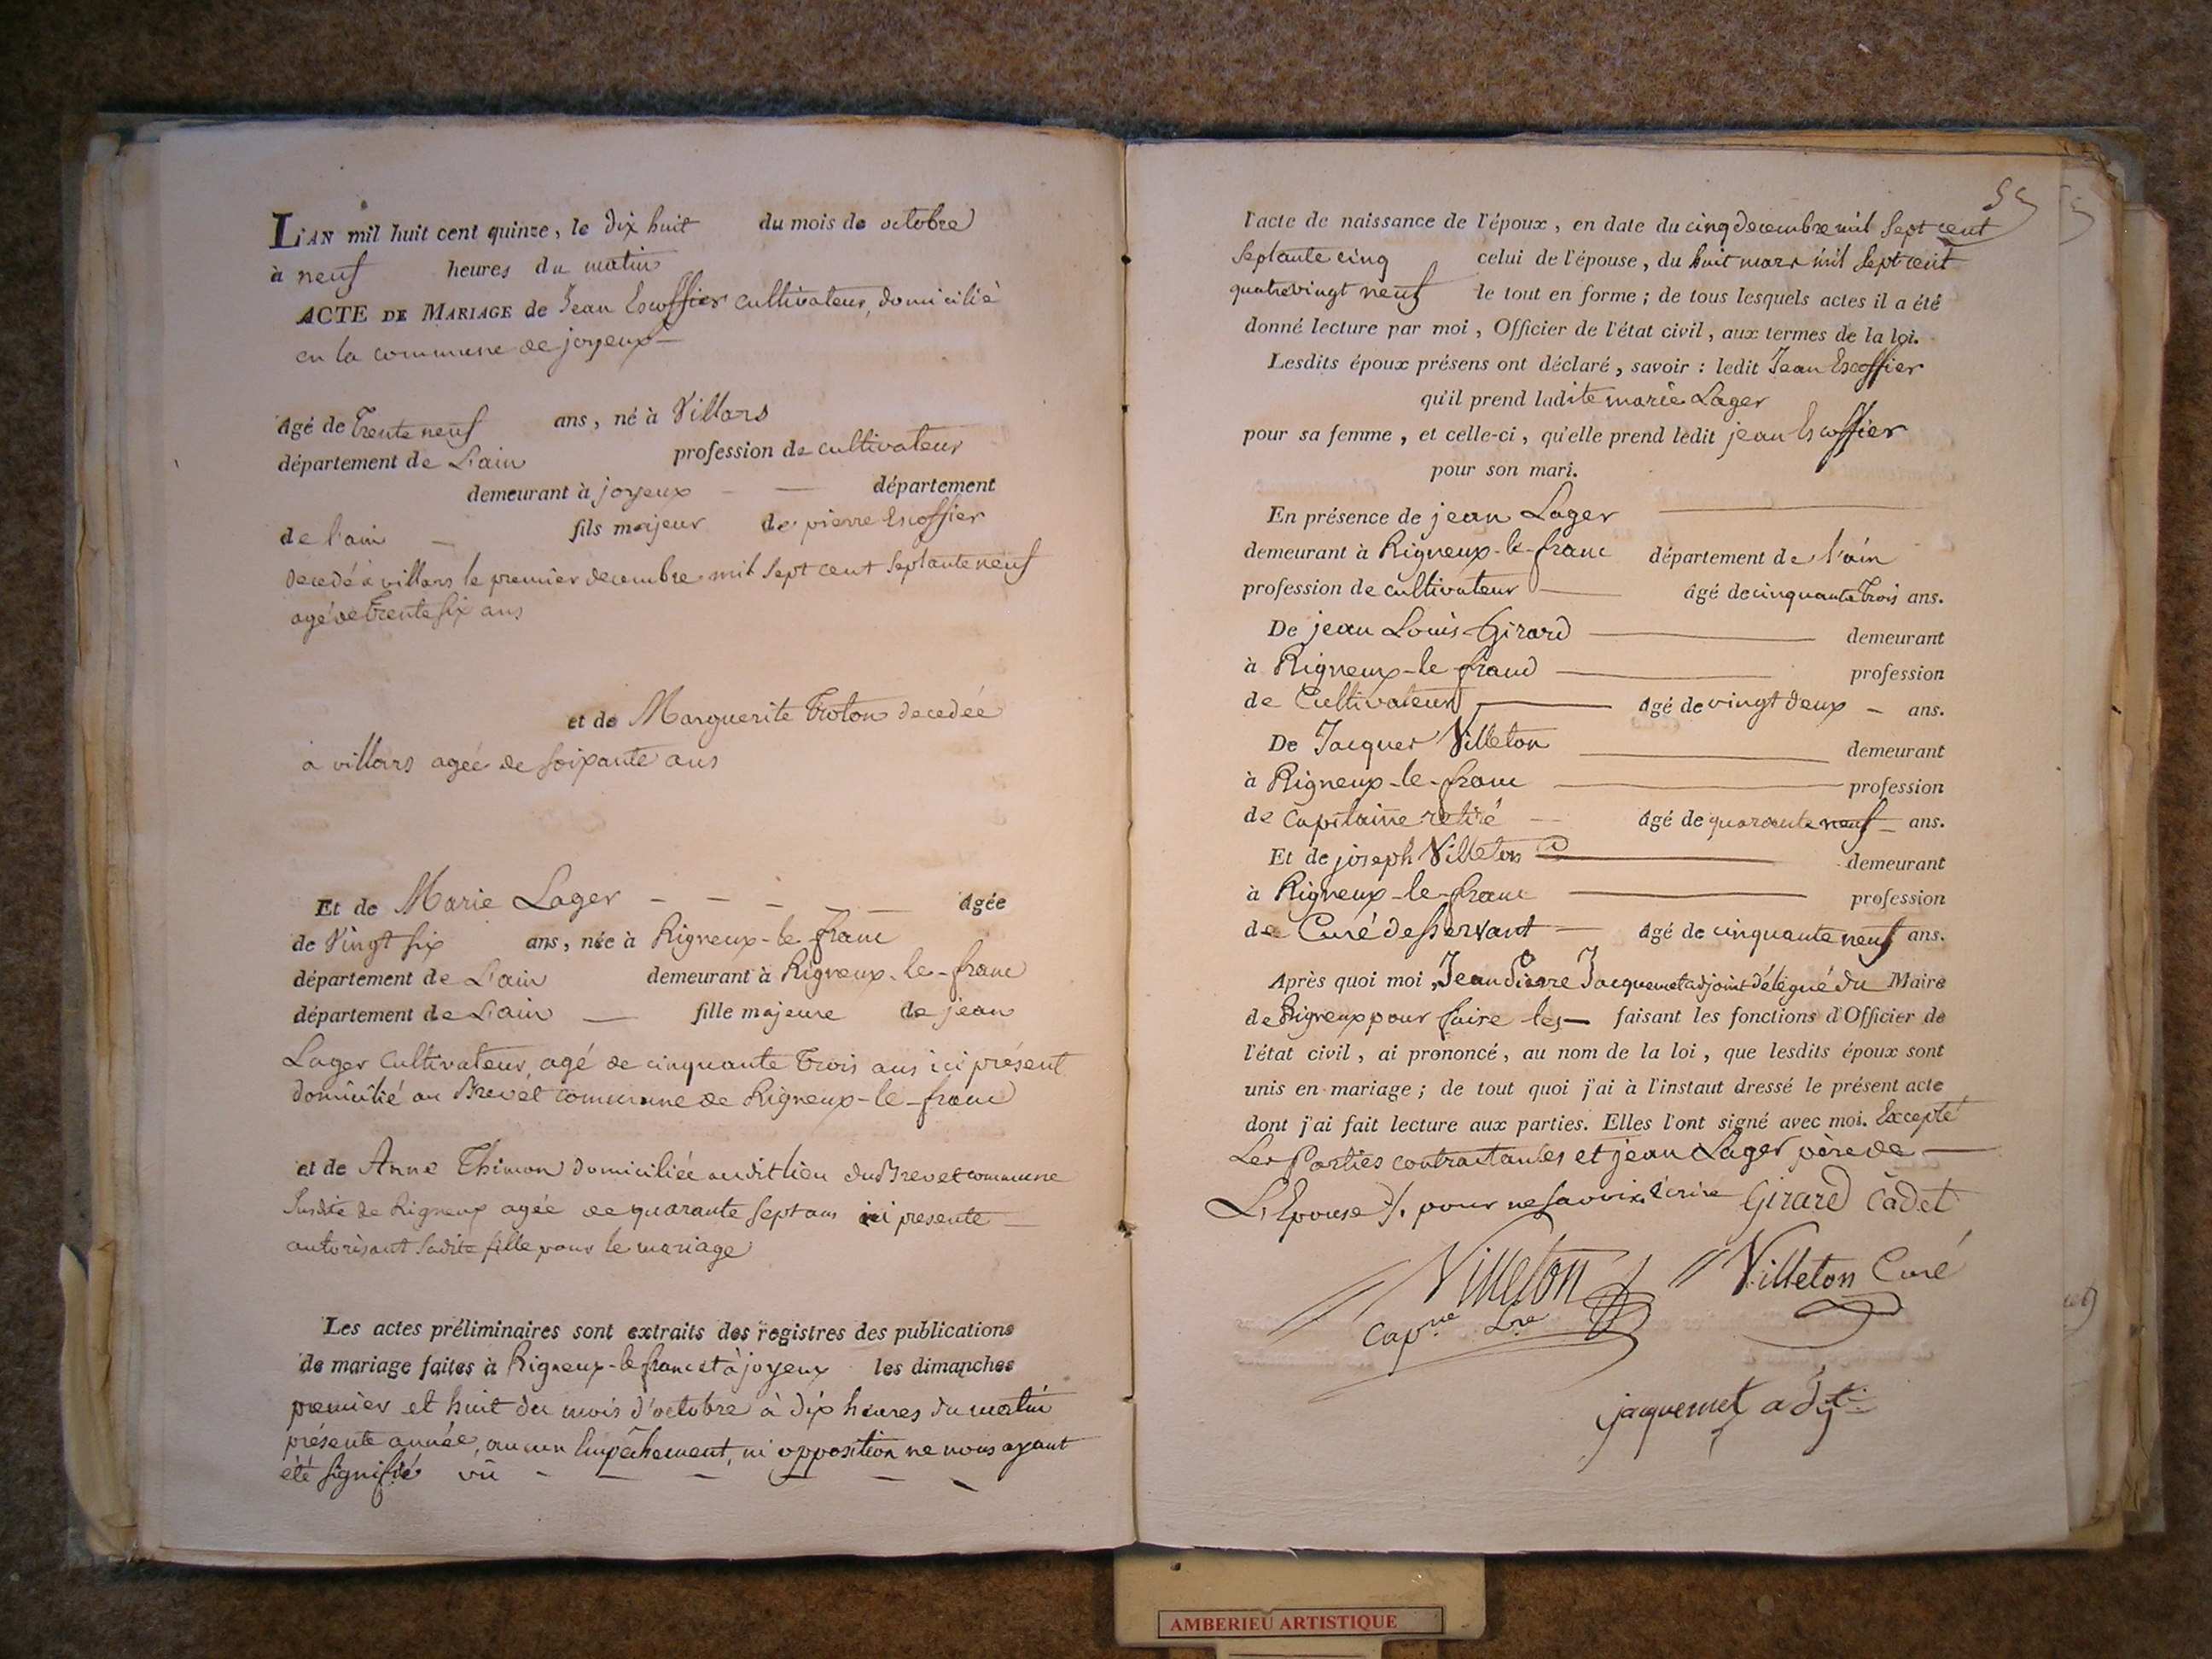 L'AN mil huit cent quinze, le dix huit du mois de octobre
à neuf heures du matin
ACTE DE MARIAGE de Jean Escoffier cultivateur, domicilié
en la commune de joyeux
âgé de trente neuf ans, né à Villars
département de L'ain profession de cultivateur
demeurant à joyeux département
de l'ain fils majeur de pierre Escoffier
decedé a villars le premier decembre mil sept cent septante neuf
agé de trente six ans
et de Marguerite Troton decedée
a villars agée de soixante ans
Et de Marie Lager âgée
de vingt six ans, née à Rigneux-le-franc
département de L'ain demeurant à Rigneux-le-franc
département de L'ain fille majeure de jean
Lager cultivateur, agé de cinquante trois ans ici présent
domicilié au Brevet commune de Rigneux-le-franc
et de Anne Thimon domiciliée audit lieu du Brevet commune
susdite de Rigneux agée de quarante sept ans ici presente
autorisant sadite fille pour le mariage
Les actes préliminaires sont extraits des registres des publications
de mariage faites à Rigneux-le-franc et à joyeux les dimanches
premier et huit du mois d'octobre à dix heures du matin
présente année, aucun Empêchement, ni opposition ne nous ayant
été signifié vû
55
l'acte de naissance de l'époux, en date du cinq decembre mil sept cent
septante cinq celui de l'épouse, du huit mars mil sept cent
quatrevingt neuf le tout en forme; de tous lesquels actes il a été
donné lecture par moi, Officier de l'état civil, aux termes de la loi.
Lesdits époux présens ont déclaré, savoir: ledit Jean Escoffier
qu'il prend ladite marie Lager
pour sa femme, et celle-ci, qu'elle prend ledit jean Escoffier
pour son mari.
En présence de jean Lager
demeurant à Rigneux-le-franc département de l'ain
profession de cultivateur âgé de cinquante trois ans.
De jean Louis Girard demeurant
à Rigneux-le franc profession
de Cultivateur âgé de vingt deux ans.
De Jacques Villeton demeurant
à Rigneux-le-franc profession
de Capitaine retiré âgé de quarante neuf ans.
Et de joseph Villeton demeurant
à Rigneux-le-franc profession
de Curé desservant âgé de cinquante neuf ans.
Après quoi moi, Jean Pierre Jacquemet adjoint délégué du Maire
de Rigneux pour faire les faisant les fonctions d'Officier de
l'état civil, ai prononcé, au nom de la loi, que lesdits époux sont
unis en mariage; de tout quoi j'ai à l'instant dressé le présent acte
dont j'ai fait lecture aux parties. Elles l'ont signé avec moi. Excepté
Les Parties contractantes et jean Lager père de
L'Epouse ./. pour ne savoir écrire Girard Cadet
Villeton Villeton Curé
capne
jacquemet adjt
AMBERIEU ARTISTIQUE